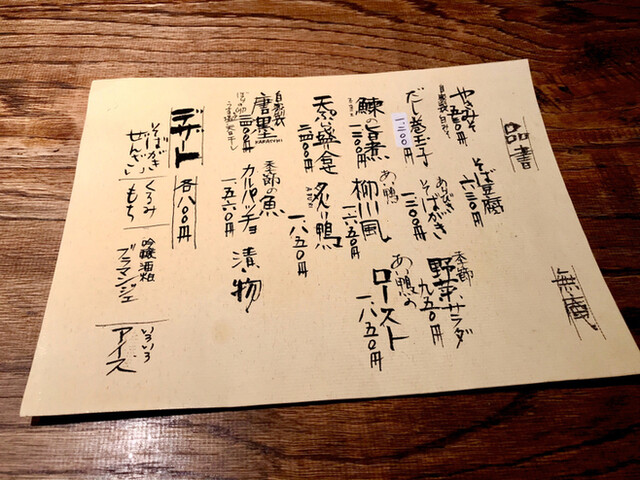 品書
無庵
やきみそ
自家製白みそ
五五〇円
そば豆腐
六三〇円
季節
野菜サラダ
九五〇円
だし巻玉子
一、二〇〇円
そばがき
一、二〇〇円
あい鴨の
ロースト
一、八五〇円
鰊の旨煮
一、二〇〇円
あい鴨
柳川風
一、六五〇円
天ぷら盛合
二、四〇〇円
炙り鴨
一、八五〇円
自家製
唐墨
KARASUMI
季節の魚
カルパッチョ
一、五六〇円
漬物
デザート 各八〇〇円
そばがき
ぜんざい
くるみ
もち
吟醸酒粕
ブラマンジェ
いろいろ
アイス